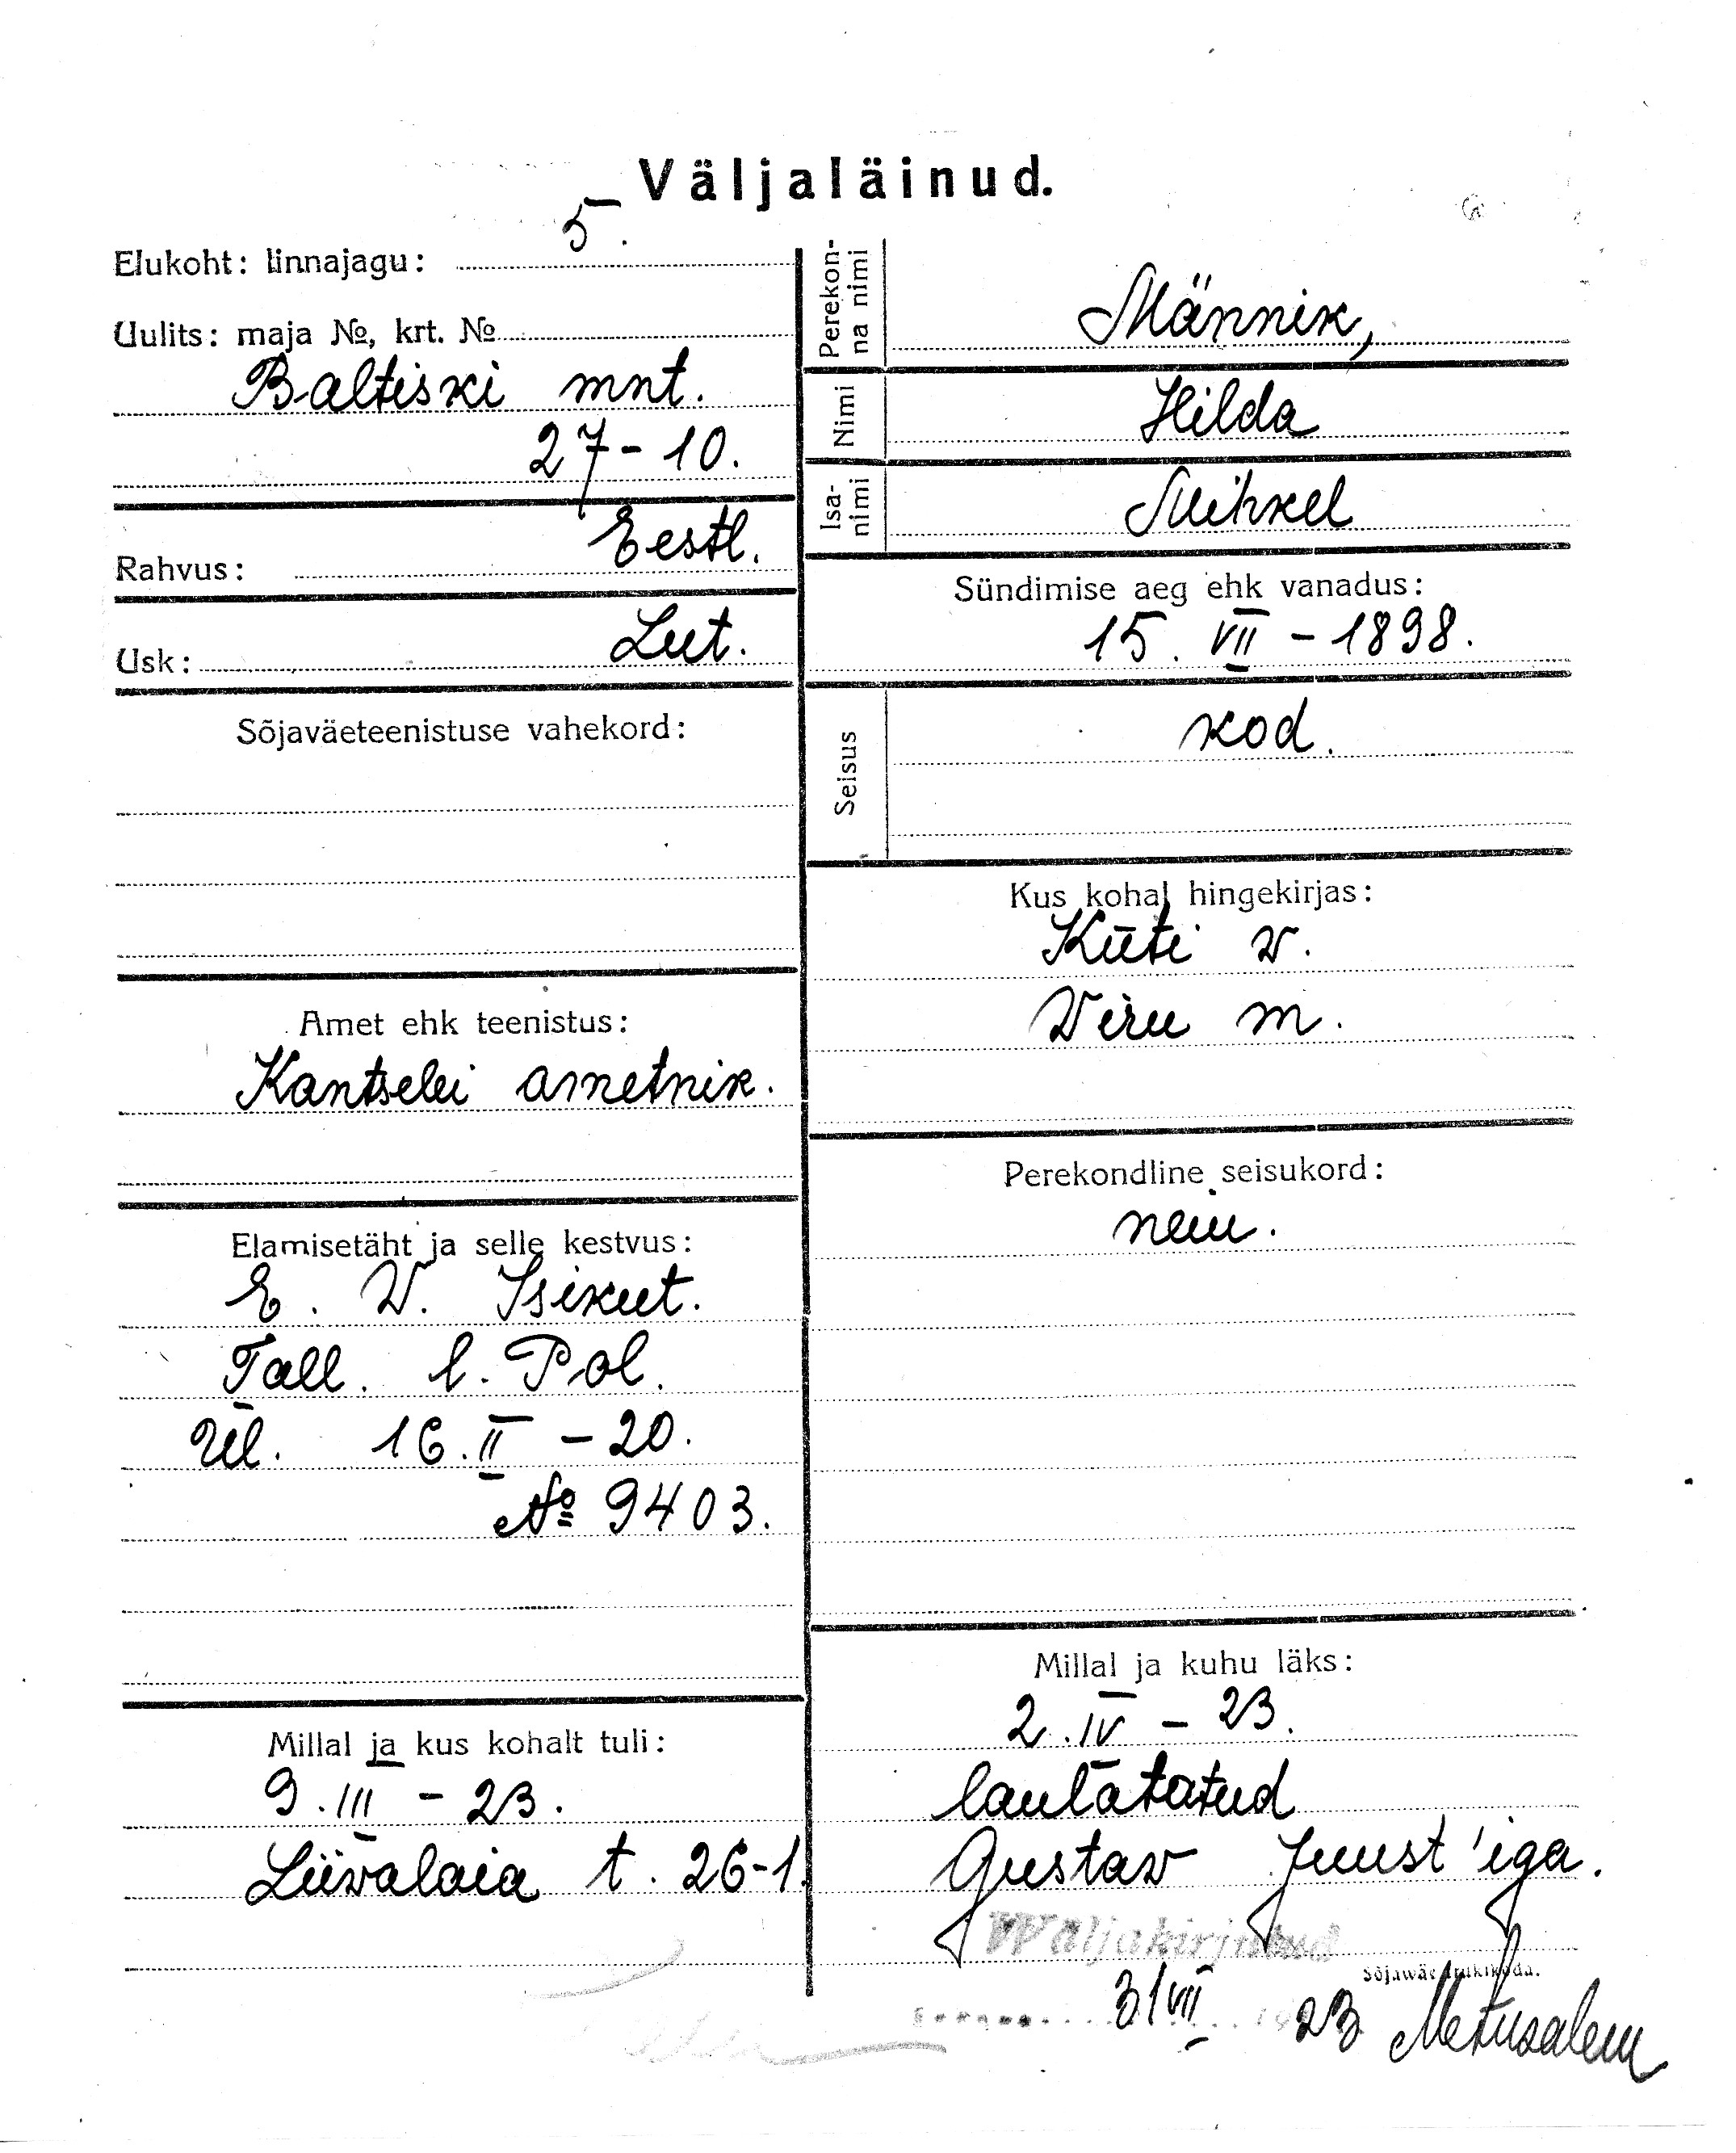 Väljaläinud.
Elukoht: linnajagu: 5.
Uulits: maja №, krt. №
Baltiski mnt.
27-10.
Rahvus: Eestl.
Usk: Lut.
Sõjaväeteenistuse vahekord:
Amet ehk teenistus:
Kantselei ametnik.
Elamisetäht ja selle kestvus:
E. V. Isikut.
Tall. l. Pol.
Ül. 16. II - 20.
№ 9403.
Millal ja kus kohalt tuli:
9. III - 23.
Liivalaia t. 26-1.
Perekonna nimi
Männik,
Nimi
Hilda
Isanimi
Mihkel
Sündimise aeg ehk vanadus:
15. VII - 1898.
Seisus
kod.
Kus kohal hingekirjas:
Küti v.
Viru m.
Perekondline seisukord:
neiu.
Millal ja kuhu läks:
2. IV - 23.
laulatatud
Gustav Juust'iga.
Wäljakirjutud
Sõjawäe trükikoda.
31 VII 23 Metusalem